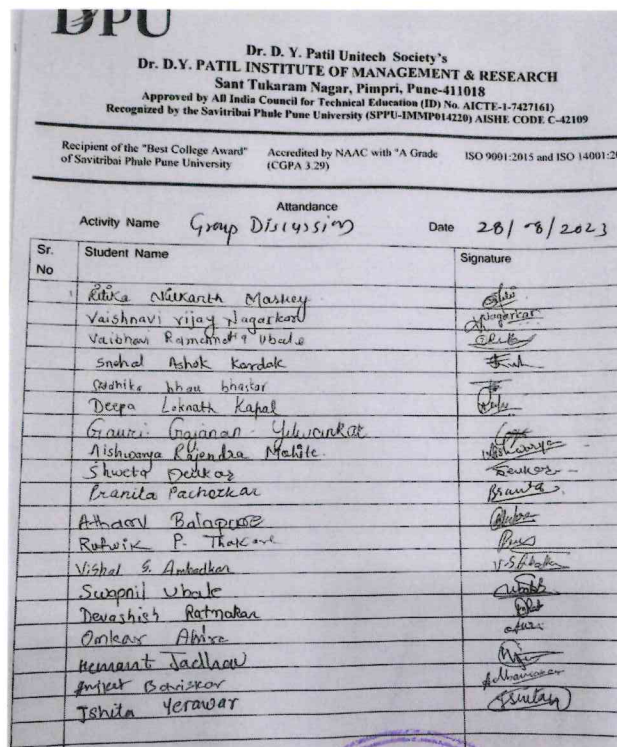 DPU
Dr. D. Y. Patil Unitech Society's
Dr. D.Y. PATIL INSTITUTE OF MANAGEMENT & RESEARCH
Sant Tukaram Nagar, Pimpri, Pune-411018
Approved by All India Council for Technical Education (ID) No. AICTE-1-7427161)
Recognized by the Savitribai Phule Pune University (SPPU-IMMP014220) AISHE CODE C-42109
Recipient of the "Best College Award" Accredited by NAAC with "A Grade ISO 9001:2015 and ISO 14001:20
of Savitribai Phule Pune University (CGPA 3.29)
Attandance
Activity Name Group Discussion Date 28/08/2023
Sr. No Student Name Signature
Ritika Nilkanth Maskey
Vaishnavi vijay Nagarkar Nagarkar
Vaibhavi Ubale
Snehal Ashok Kardak
bhau bhaskar
Deepa Loknath Kapal
Gauri Gajanan
Aishwarya Rajendra Mohite Aishwarya
Shweta Deukar Deukar
Pranita Pachorkar
Atharv
Rutwik P. Thakare
Vishal S. Ambadkar
Swapnil Ubale
Devashish Ratnakar
Omkar Ahire
Hemant Jadhav
Aniket Baviskar
Ishita Yerawar